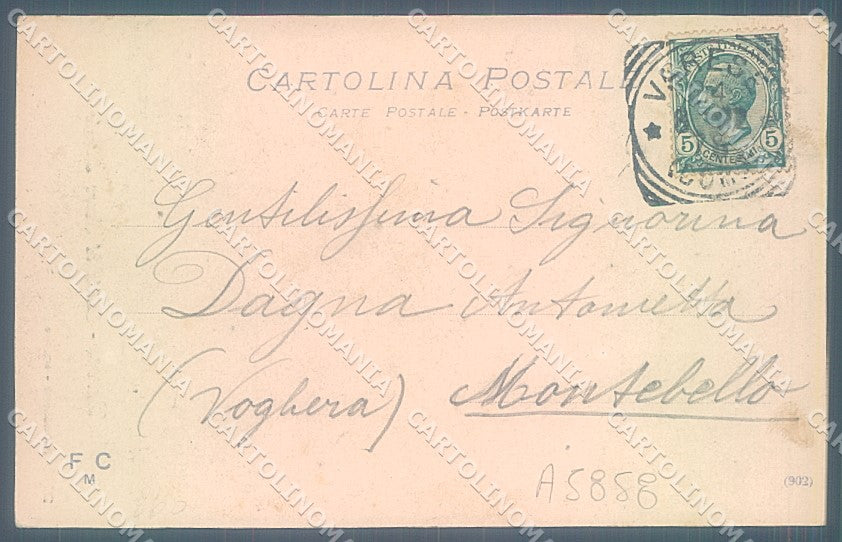 CARTOLINA POSTALE
CARTE POSTALE - POSTKARTE
POSTE ITALIANE
5 CENTESIMI 5
Gentilissima Signorina
Dagna Antonietta
(Voghera) Montebello
F C
M
A5856
(902)
CARTOLINOMANIA